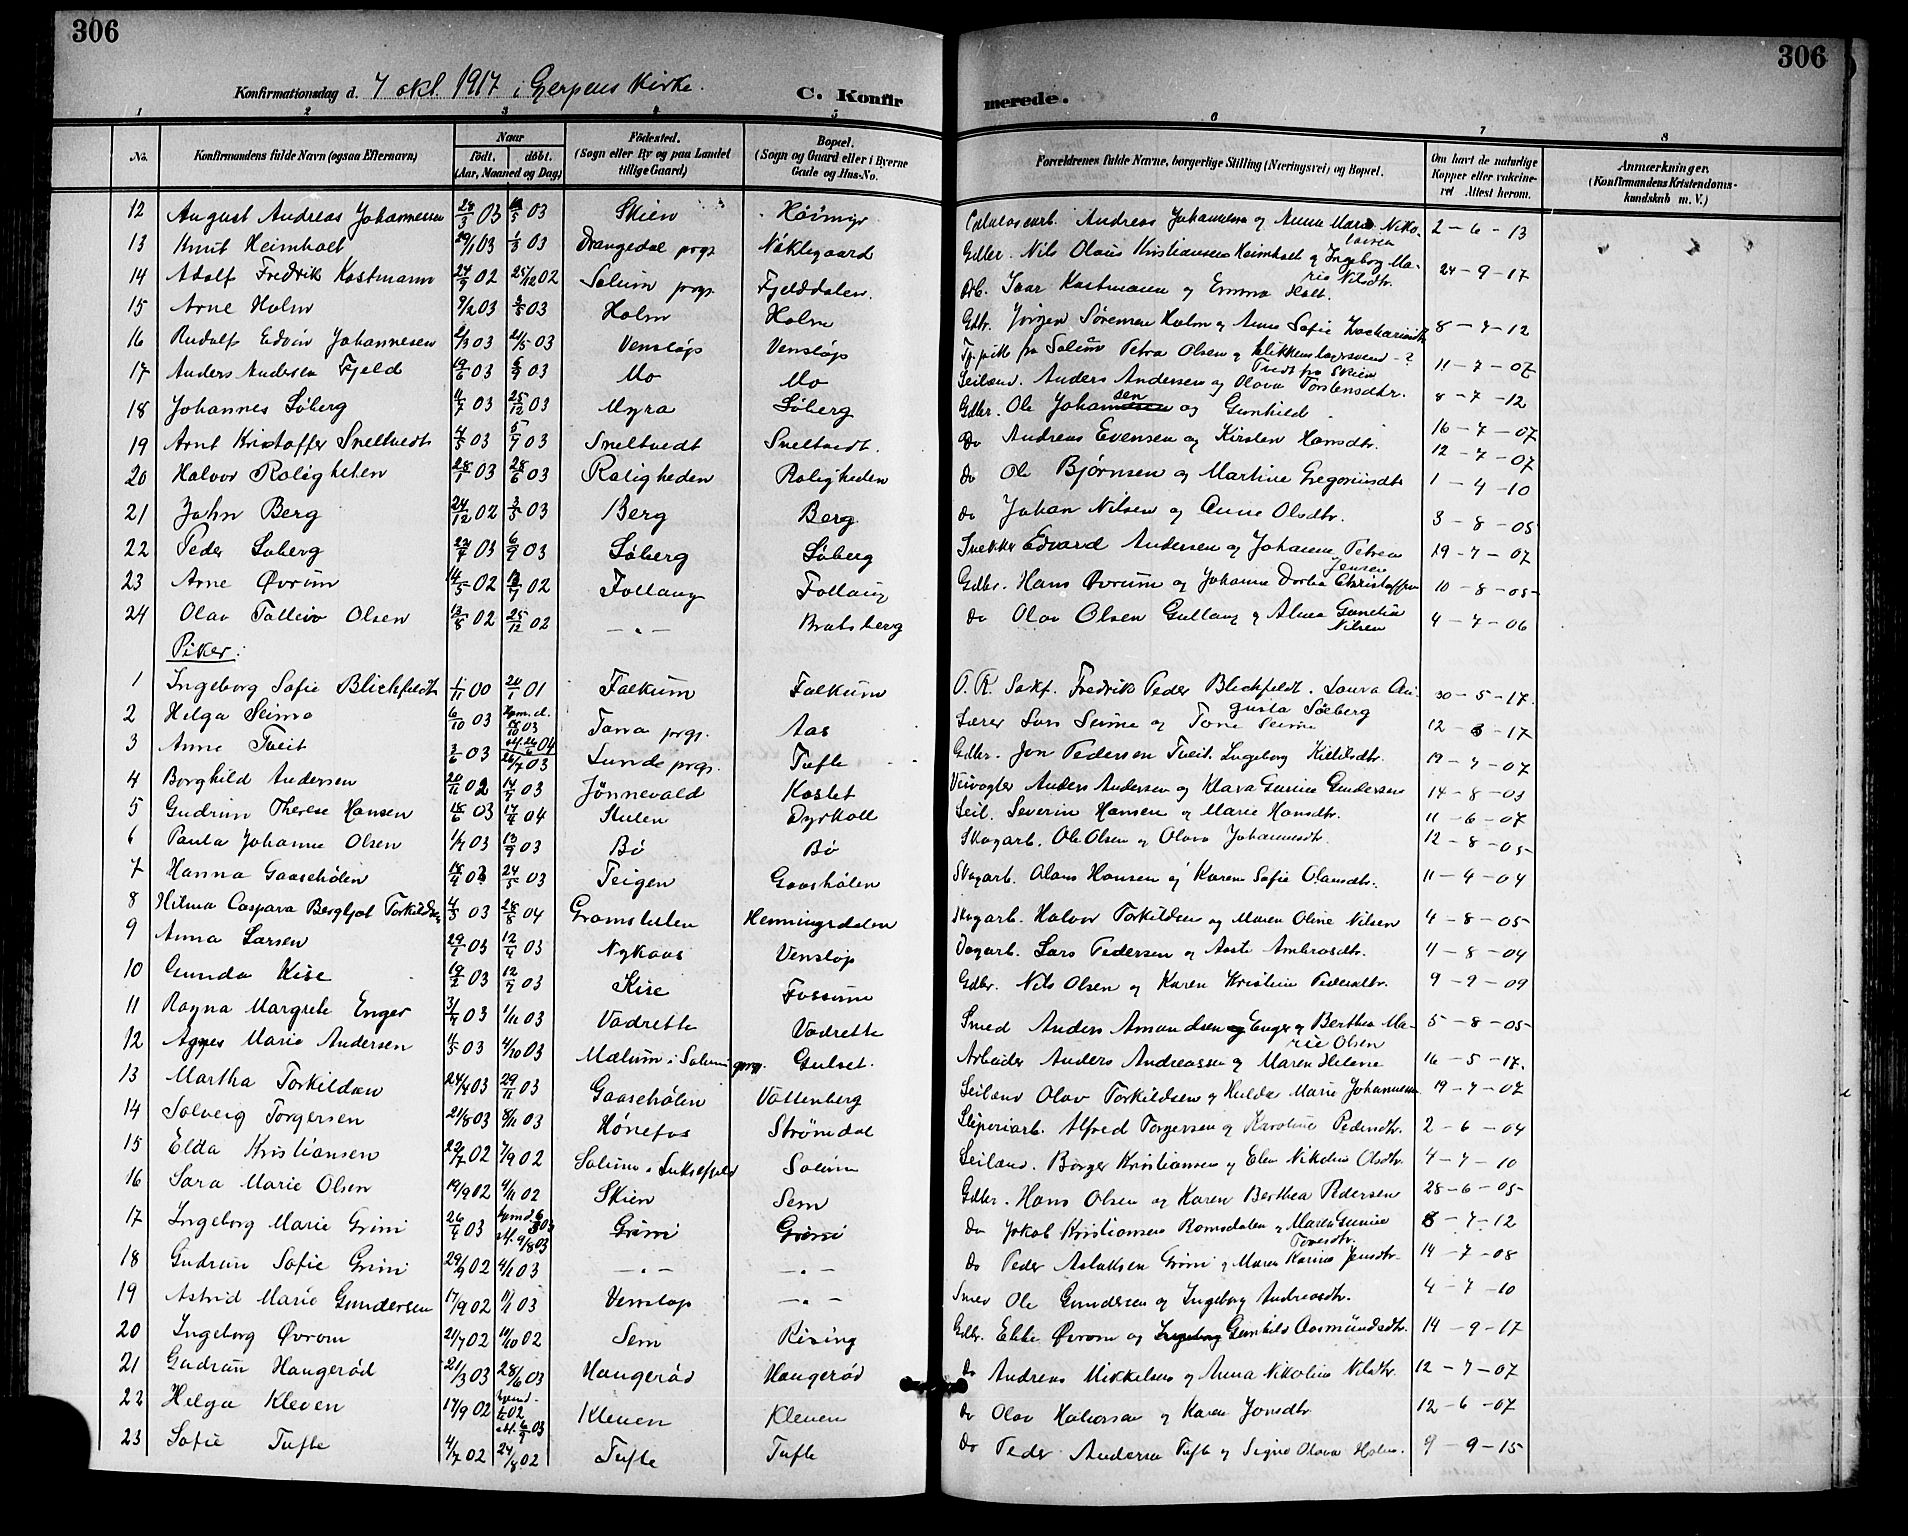 306
306
Konfirmationsdag d. 7 okt. 1917 i Gjerpens Kirke.
C. Konfirmerede.
1 2 3 4 5 6 7 8
No. Konfirmandens fulde Navn (ogsaa Efternavn) Naar født. døbt. (Aar, Maaned og Dag) Fødested. (Sogn eller By og paa Landet tillige Gaard) Bopæl. (Sogn og Gaard eller i Byerne Gade og Hus-No. Forældrenes fulde Navne, borgerlige Stilling (Næringsvei) og Bopæl. Om havt de naturlige Kopper eller vakcineret Attest herom. Anmærkninger. (Konfirmandens Kristendomskundskab m. V.)
12 August Andreas Johannessen 28/3 03 5 03 Skien Andreas Johannessen og Anna Marie Nikolaisen 2-6-13
13 Knut Heimholt 29/1 03 1/3 03 Drangedal prgj. Nøklegaard Gdbr. Nils Olaus Kristiansen Heimholt og Ingeborg Marie Nilsdtr. 24-9-17
14 Adolf Fredrik Kastmann 24/9 02 25/12 02 Solum prgj. Fjelddalen. Arb. Ivar Kastmann og Emma Holt.
15 Arne Holm 9/2 03 03 Holm Holm Gdbr. Jørgen Sørensen Holm og Anne Sofie Zachariasdtr. 8-7-12
16 Rudolf Edvin Johannesen 2/3 03 21/5 03 Venstøp Venstøp Tj.pike fra Solum Petra Olsen og blikkenslagersvend - ? Tvedt fra Skien 11-7-07
17 Anders Andersen Fjeld 19/6 03 6/9 03 Mo Mo Leilænd. Anders Andersen og Olava Torstensdtr. 8-7-12
18 Johannes Løberg 11/7 03 25/12 03 Myra Løberg Gdbr. Ole Johansen og Gunhild 16-7-07
19 Arnt Kristoffer Sneltvedt 4/5 03 5/7 03 Sneltvedt Sneltvedt. Do Andreas Evensen og Kirsten Hansdtr. 12-7-07
20 Halvor Roligheten 28/1 03 28/6 03 Roligheden Roligheden Do Ole Bjørnsen og Martine Gregoriusdtr 1-4-10
21 John Berg 24/12 02 3/5 03 Berg Berg Do Johan Nilsen og Anne Olsdtr. 3-8-05
22 Peder Løberg 03 6/9 03 Løberg Løberg Snekker Edvard Andersen og Johanne Petrea Jensen 19-7-07
23 Arne Øvrum 14/5 02 02 Follaug Follaug Gdbr. Hans Øvrum og Johanne Dorthea Christoffersen 10-8-05
24 Olav Tallein Olsen 13/8 02 25/12 02 -"- Bratsberg Do Olav Olsen Gullaug og Alma Nilsen 4-7-06
Piker:
1 Ingeborg Sofie Blichfeldt 1/11 00 20/1 01 Falkum Falkum O.R. Sakf. Fredrik Peder Blichfeldt. Laura Augusta Søeberg 30-5-17
2 Helga Seime 6/10 03 Hjem.d. 18/10 03 04 Tana prgj. Aas Lærer Lars Seime og Tone Seime 12-8-17
3 Anne Tveit 3/6 03 26/7 03 Lunde prgj. Tufte Gdbr. Jon Pedersen Tveit. Ingeborg Kittilsdtr. 19-7-07
4 Borghild Andersen 20/11 02 14/9 03 Jønnevald Kastet Veivogter Anders Andersen og Klara Gurine Gundersen 14-8-03
5 Gudrun Therese Hansen 18/6 03 17/4 04 Stulen Dyrkoll Leil. Severin Hansen og Marie Hansdtr. 11-6-07
6 Paula Johanne Olsen 1/7 03 13/9 03 Bø Bø Skogarb. Ole Olsen og Olava Johannesdtr. 12-8-05
7 Hanna Gaasehølen 18/4 03 24/5 03 Teigen Gaashølen Skogarb. Olaus Hansen og Karen Sofie Olausdtr. 11-4-04
8 Hilma Caspara Bergljot Torkildsen 4/5 03 28/8 04 Gromstulen Henningsdalen Skogarb. Halvor Torkildsen og Maren Oline Nilsen 4-8-05
9 Anna Larsen 29/1 03 12/4 03 Nykaas Venstøp Dagarb. Lars Pedersen og Aaste Ambrosdtr. 11-8-04
10 Gunda Kise 19/2 03 12/4 03 Kise Fossum Gdbr. Nils Olsen og Karen Kristine Pedersdtr. 9-9-09
11 Ragna Margrete Enger 3/7 03 1/11 03 Vadrette Vadrette Smed Anders Amundsen Enger og Berthea Marie Olsen 5-8-05
12 Agnes Marie Andersen 11/5 03 4/10 03 Mælum i Solum prgj. Gulset. Arbeider Anders Andreassen og Maren Helene 16-5-17.
13 Martha Torkildsen 24/4 03 29/11 03 Gaasehølen Vattenberg Leilænd Olav Torkildsen og Hulda Marie Johannesen 19-7-07
14 Solveig Torgersen 21/8 03 8/11 03 Hønefos Strømdal Sliperiarb. Alfred Torgersen og Karoline Pedersdtr. 2-6-04
15 Elda Kristiansen 29/7 02 7/9 02 Solum. Luksefjeld Solum Leilænd. Børger Kristiansen og Elen Nikoline Olsdtr. 4-7-10
16 Sara Marie Olsen 19/9 02 4/11 02 Skien Sem Gdbr. Hans Olsen og Karen Berthea Pedersen 28-6-05
17 Ingeborg Marie Grini 26/4 03 hjemd. 03 stf. 9/8 03 Grini Grini Do Jakob Kristiansen Romsdalen og Maren Gurine Tovesdtr. 8-7-12
18 Gudrun Sofie Grini 29/9 02 4/1 03 -"- -"- Do Peder Aslaksen Grini og Maren Karine Jensdtr. 14-7-08
19 Astrid Marie Gundersen 17/9 02 11/1 03 Venstøp -"- Smed Ole Gundersen og Ingeborg Andreasdtr. 4-7-10
20 Ingeborg Øvrom 21/7 02 19/10 02 Sem Rising Gdbr. Ekke Øvrom og Ingeborg Gunhild Aasmundsdtr. 14-9-17
21 Gudrun Haugerød 21/3 03 28/6 03 Haugerød Haugerød Do Andreas Mikkelsen og Anna Nikoline Nilsdtr. 12-7-07
22 Helga Kleven 17/9 02 hjemd. 02 stf. 6/9 03 Kleven Kleven Do Olav Halvorsen og Karen Jonsdtr. 12-6-07
23 Sofie Tufte 4/7 02 24/8 02 Tufte Tufte Do Peder Andersen Tufte og Signe Olava Holm. 9-9-15